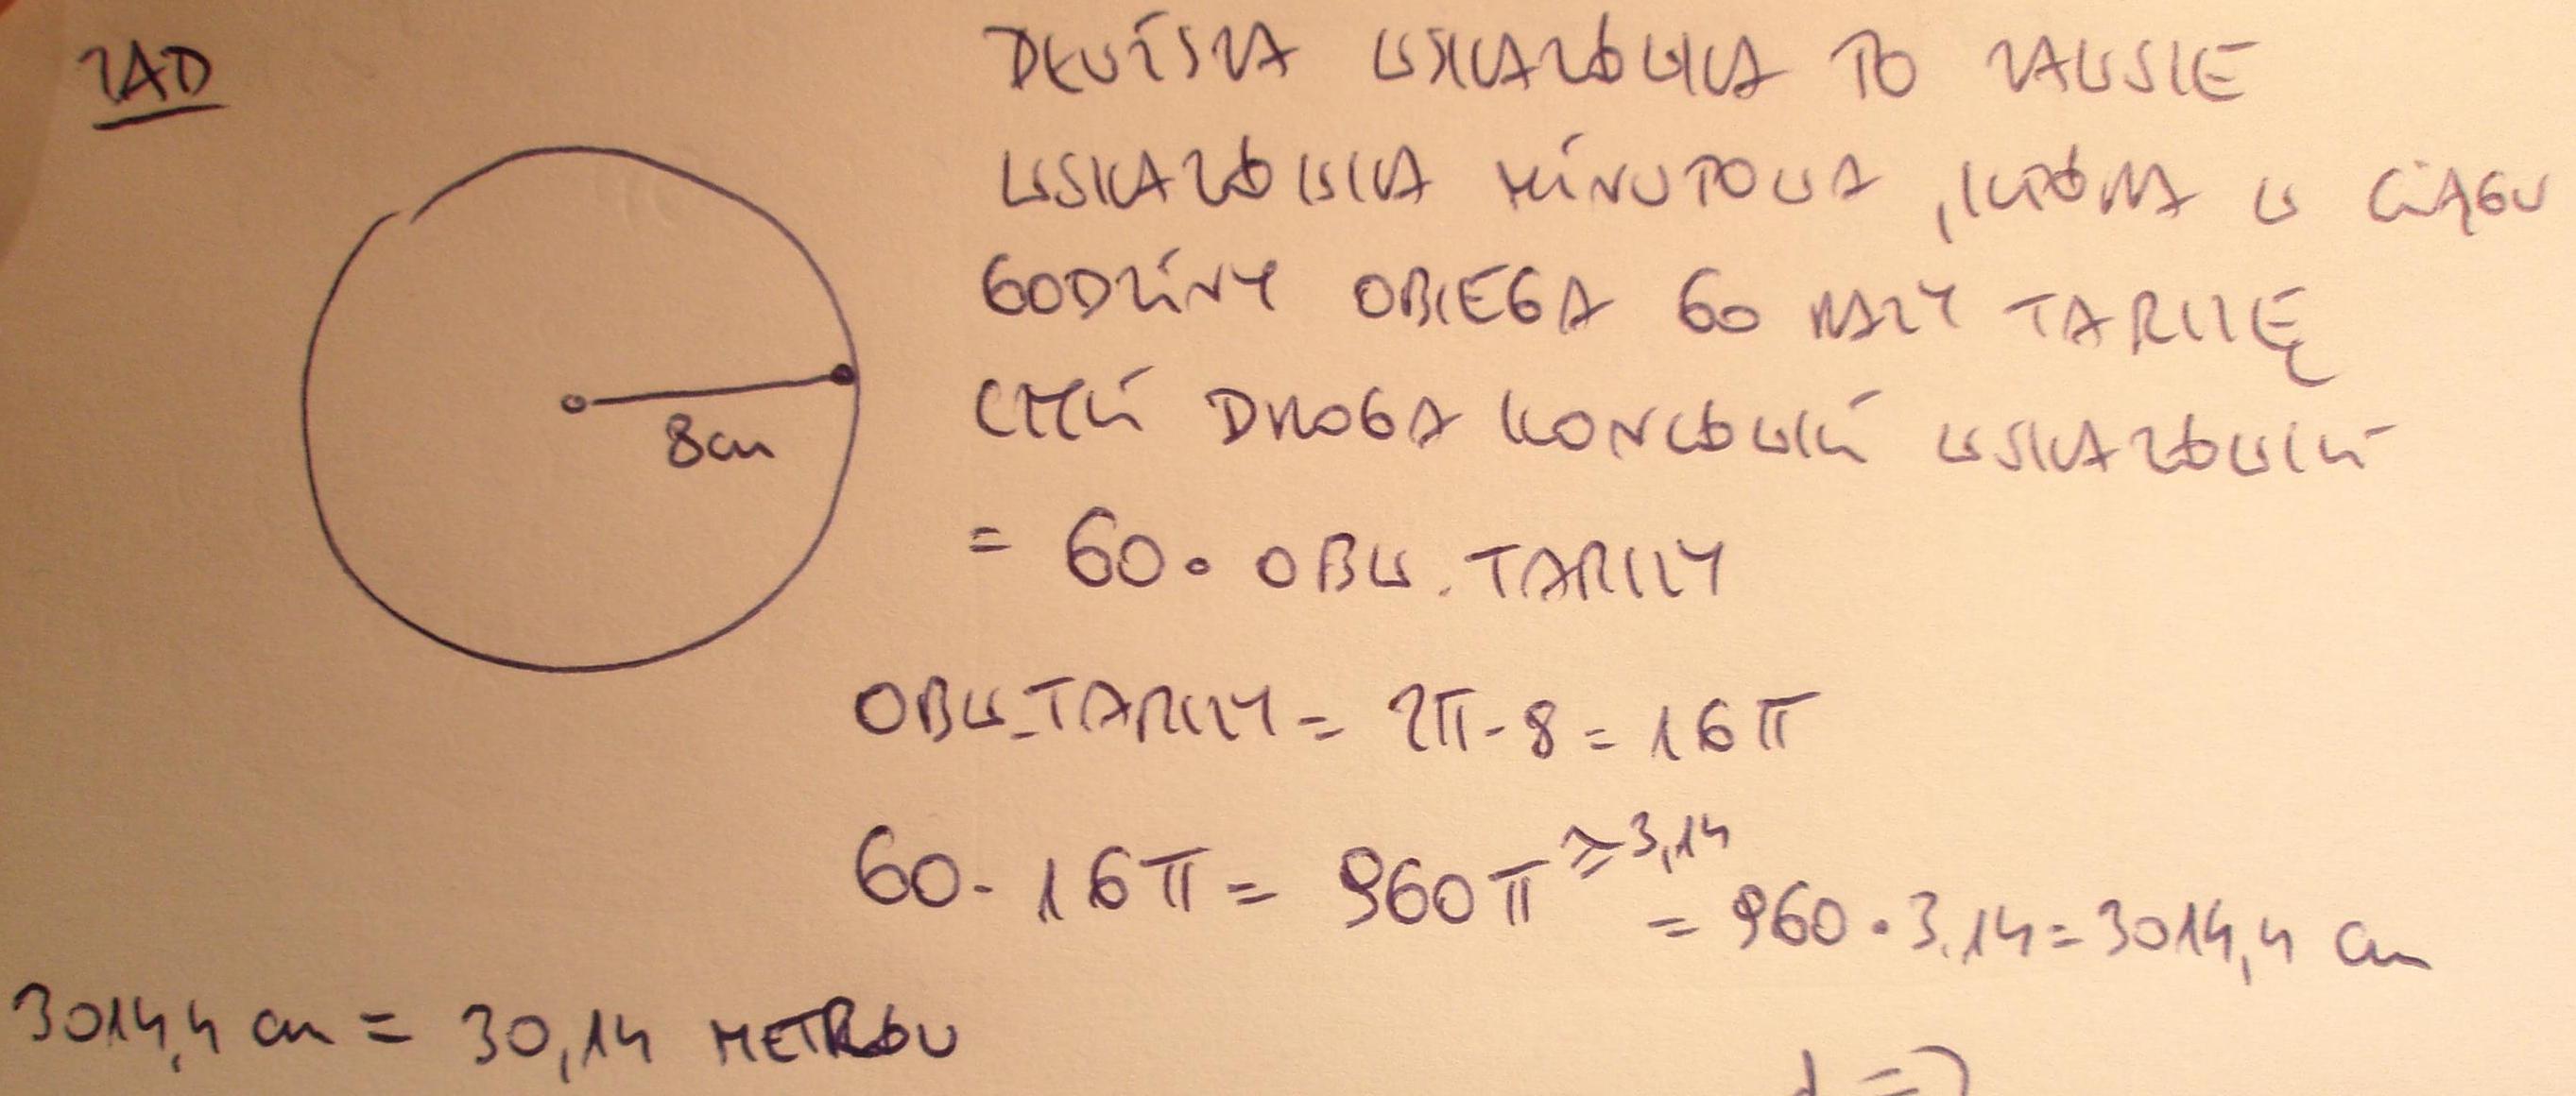 ZAD
DŁUŻSZA WSKAZÓWKA TO ZAWSZE
WSKAZÓWKA MINUTOWA, KTÓRA W CIĄGU
GODZINY OBIEGA 60 RAZY TARCZĘ
CZYLI DROGA KOŃCÓWKI WSKAZÓWKI
= 60 · OBW. TARCZY
8cm
OBW. TARCZY = 2π · 8 = 16π
60 · 16π = 960π ≈ 3,14
= 960 · 3,14 = 3014,4 cm
3014,4 cm = 30,14 METRÓW